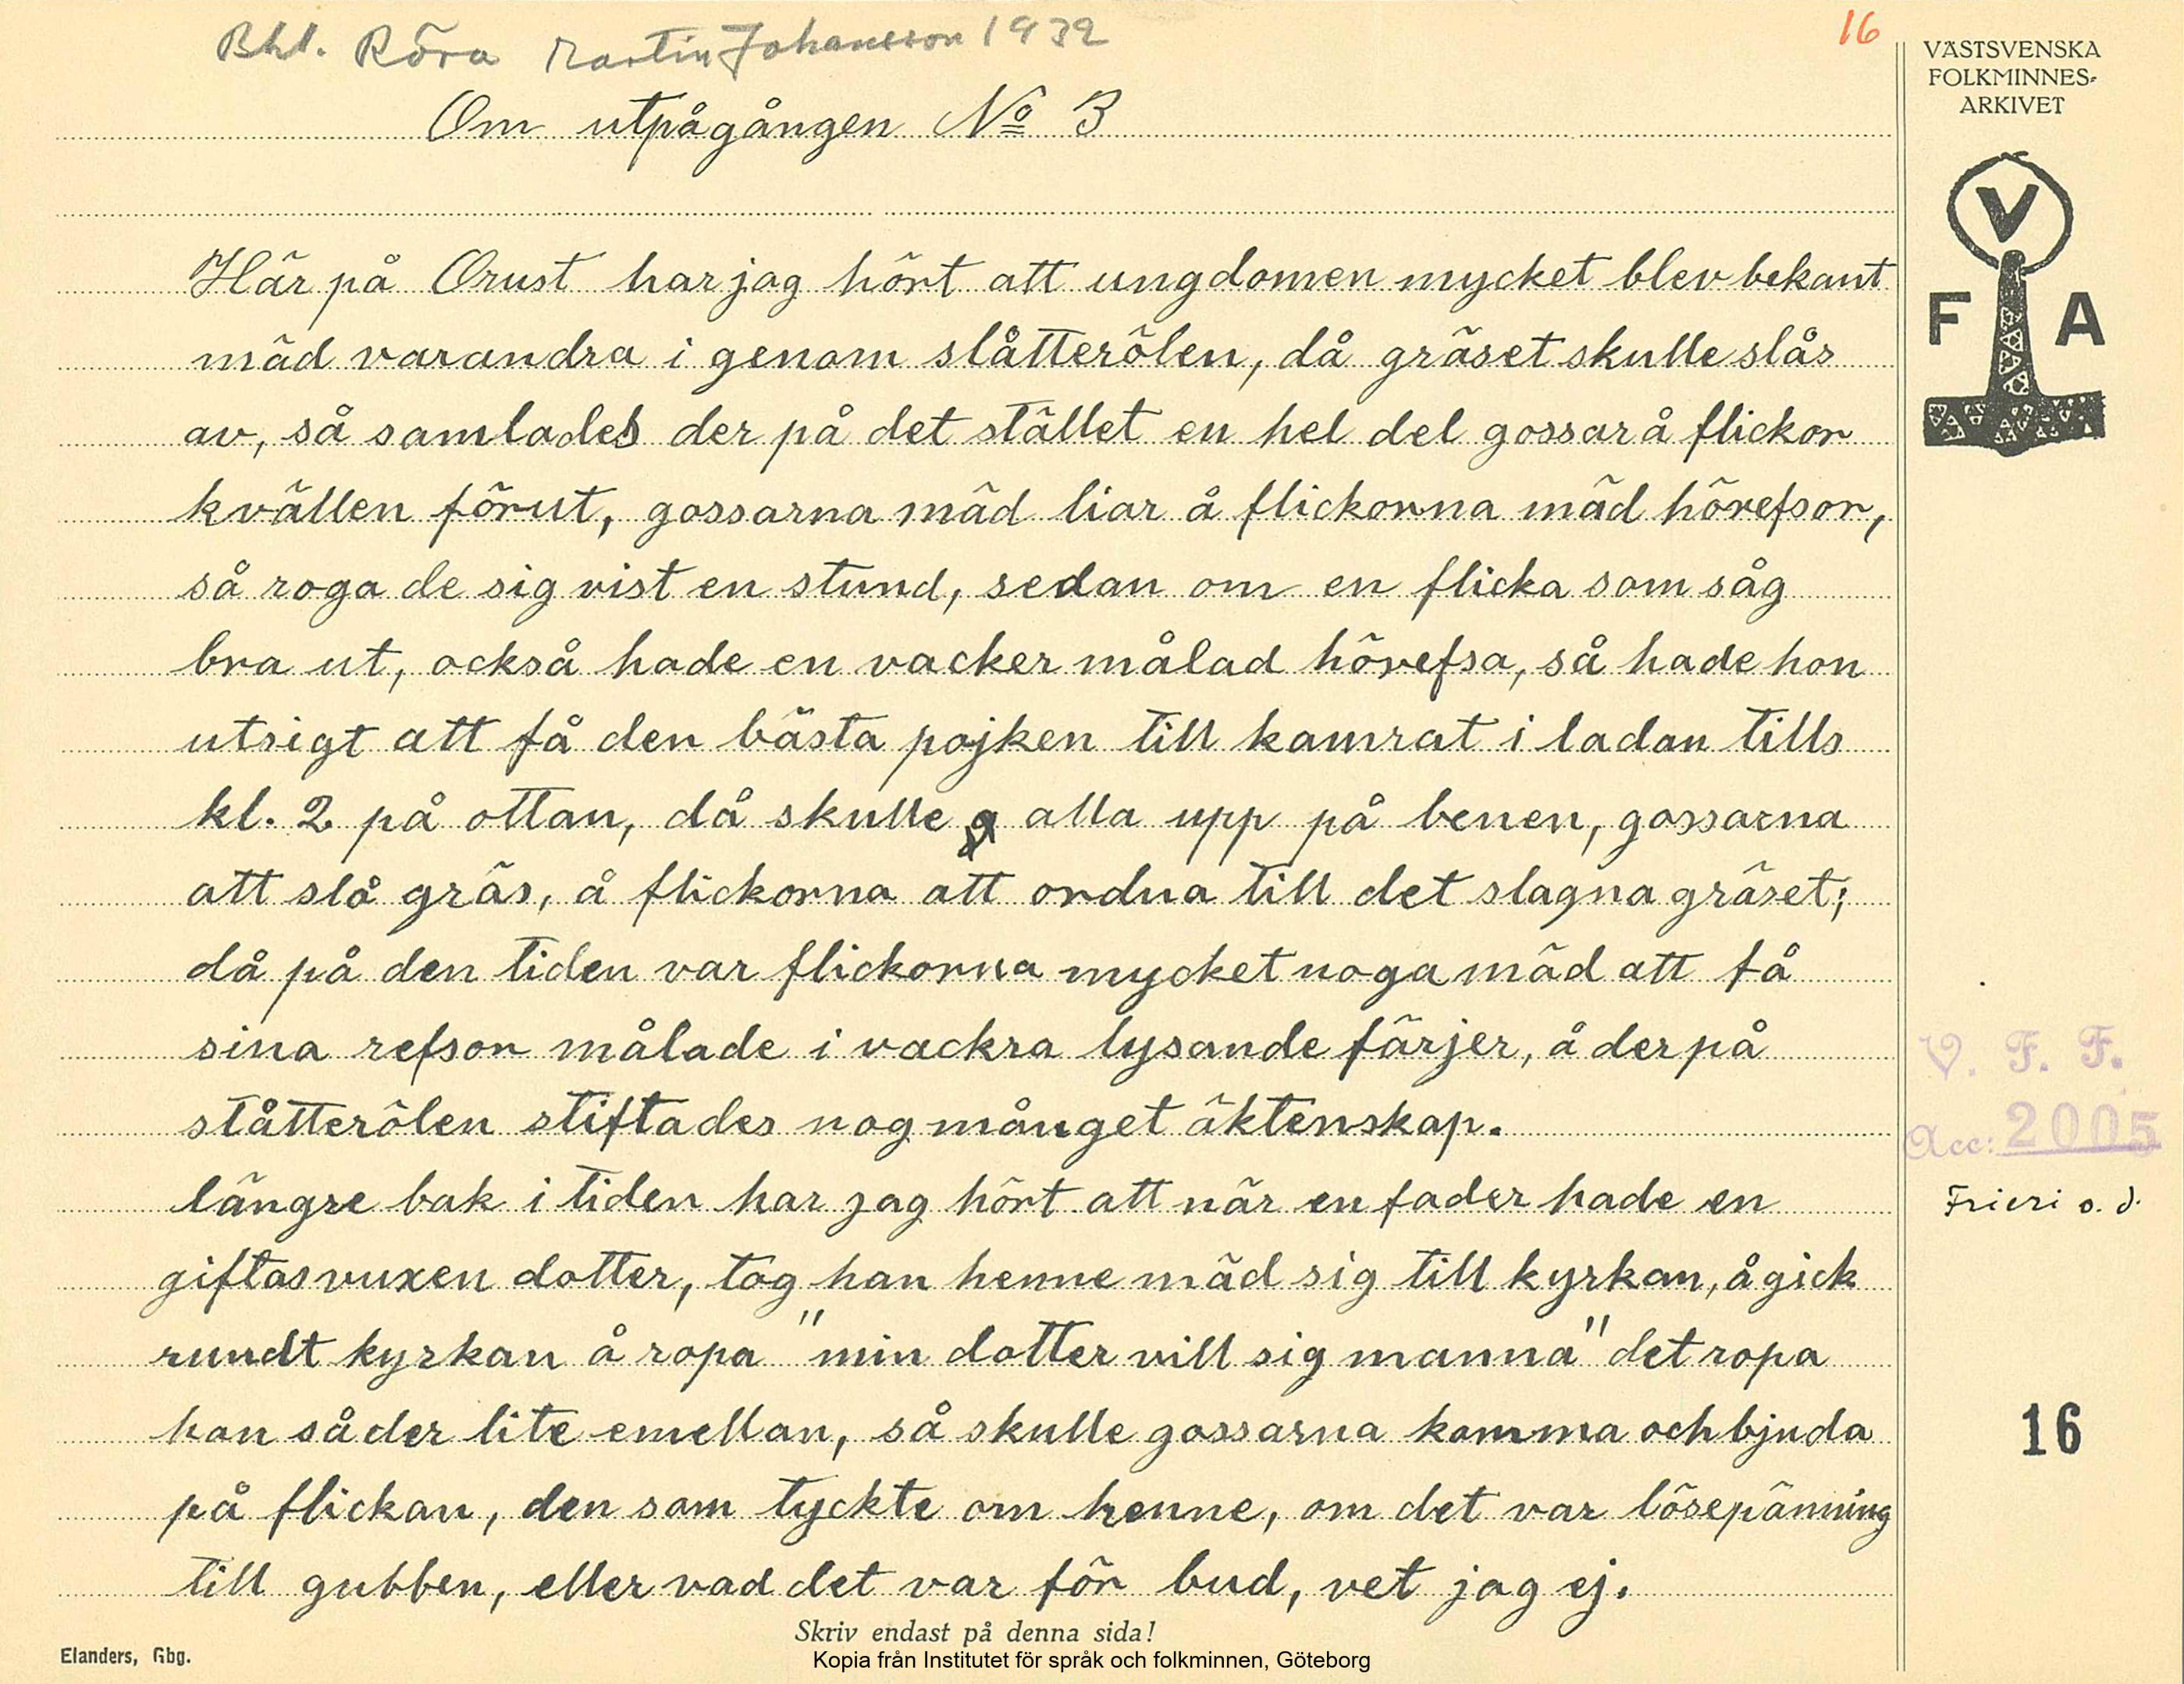 Bhl. Röra Martin Johansson 1932
16
VÄSTSVENSKA
FOLKMINNES-
ARKIVET
Om utpågången No 3
V
F A
Här på Orust har jag hört att ungdomen mycket blev bekant
mäd varandra i genom slåtterölen, då gräset skulle slås
av, så samlades der på det stället en hel del gossar å flickor
kvällen förut, gossarna mäd liar å flickorna mäd hörefsor,
så roga de sig vist en stund, sedan om en flicka som såg
bra ut, också hade en vacker målad hörefsa, så hade hon
utsigt att få den bästa pojken till kamrat i ladan tills
kl. 2 på ottan, då skulle alla upp på benen, gossarna
att slå gräs, å flickorna att ordna till det slagna gräset;
då på den tiden var flickorna mycket noga mäd att få
sina refsor målade i vackra lysande färjer, å der på
slåtterölen stiftades nog månget äktenskap.
längre bak i tiden har jag hört att när en fader hade en
giftasvuxen dotter, tog han henne mäd sig till kyrkan, å gick
rundt kyrkan å ropa "min dotter vill sig manna" det ropa
han så der lite emellan, så skulle gossarna komma och bjuda
på flickan, den som tyckte om henne, om det var lösepänning
till gubben, eller vad det var för bud, vet jag ej.
V. F. F.
Acc: 2005
Frieri o. d.
16
Skriv endast på denna sida!
Elanders, Gbg.
Kopia från Institutet för språk och folkminnen, Göteborg